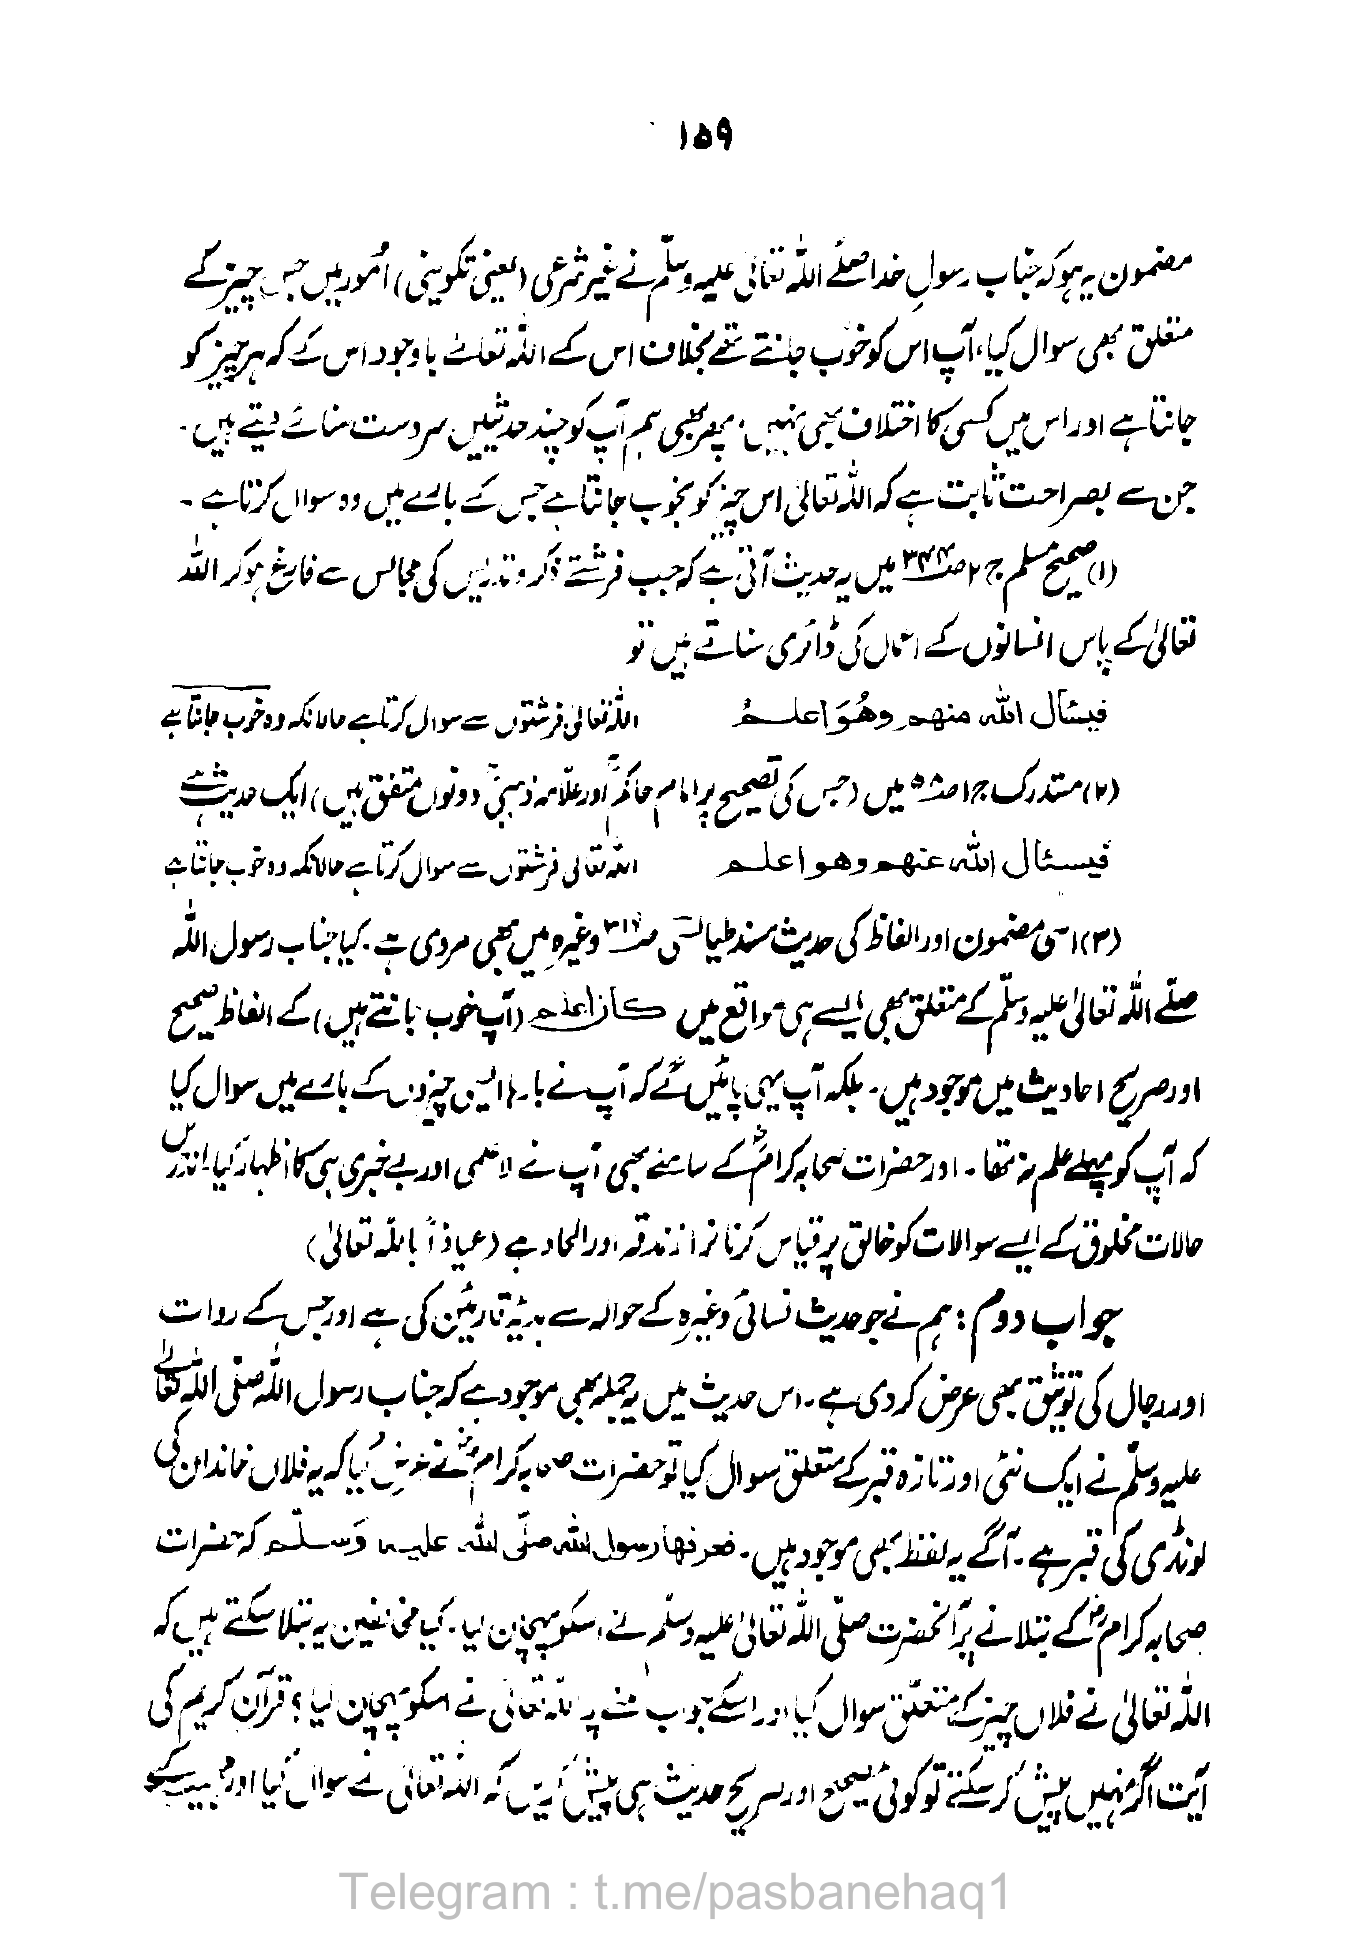 ۱۵۹
مضمون یہ ہو کہ جناب رسولِ خدا صلے اللہ تعالیٰ علیہ وسلّم نے غیر شرعی (یعنی تکوینی) اُمور میں جس چیز کے
متعلق بھی سوال کیا، آپ اس کو خوُب جانتے تھے بخلاف اس کے اللہ تعالےٰ باوجود اس کے کہ ہر چیز کو
جانتا ہے اور اس میں کسی کا اختلاف بھی نہیں، پھر بھی ہم آپ کو چند حدیثیں سرِدست سنائے دیتے ہیں۔
جن سے بصراحت ثابت ہے کہ اللہ تعالیٰ اس چیز کو بخوب جانتا ہے جس کے بارے میں وہ سوال کرتا ہے۔
(۱) صحیح مسلم ج ۲ ص۳۴۴ میں یہ حدیث آتی ہے کہ جب فرشتے ذکر و تدریس کی مجالس سے فارغ ہو کر اللہ
تعالیٰ کے پاس انسانوں کے اعمال کی ڈائری سناتے ہیں تو
فیسئال اللہ منھم وھُوَ اعلـمُ اللہ تعالیٰ فرشتوں سے سوال کرتا ہے حالانکہ وہ خوب جانتا ہے
(۲) مستدرک ج۱ ص۵۸ میں (جس کی تصحیح پر امام حاکمؒ اور علّامہ ذہبیؒ دونوں متفق ہیں) ایک حدیث ہے
فیسئال اللہ عنھم وھو اعلـم اللہ تعالیٰ فرشتوں سے سوال کرتا ہے حالانکہ وہ خوب جانتا ہے
(۳) اسی مضمون اور الفاظ کی حدیث مسند طیالسی ص۳۱۷ وغیرہ میں بھی مروی ہے۔ کیا جناب رسول اللہ
صلّے اللہ تعالیٰ علیہ وسلّم کے متعلق بھی ایسے ہی مواقع میں کان اعلم (آپ خوب جانتے ہیں) کے الفاظ صحیح
اور صریح احادیث میں موجود ہیں۔ بلکہ آپ یہی پائیں گے کہ آپ نے بارہا ایسی چیزوں کے بارے میں سوال کیا
کہ آپ کو پہلے علم نہ تھا۔ اور حضرات صحابہ کرامؓ کے سامنے بھی آپ نے لاعلمی اور بے خبری ہی کا اظہار کیا۔ اندریں
حالات مخلوق کے ایسے سوالات کو خالق پر قیاس کرنا نرا زندقہ اور الحاد ہے (عیاذاً باللہ تعالیٰ)
جواب دوم: ہم نے جو حدیث نسائی وغیرہ کے حوالہ سے ہدیۂ قارئین کی ہے اور جس کے روات
اور رجال کی توثیق بھی عرض کر دی ہے۔ اس حدیث میں یہ جملہ بھی موجود ہے کہ جناب رسول اللہ صلّی اللہ تعالےٰ
علیہ وسلّم نے ایک نئی اور تازہ قبر کے متعلق سوال کیا تو حضرات صحابہ کرامؓ نے عرض کیا کہ یہ فلاں خاندان کی
لونڈی کی قبر ہے۔ آگے یہ لفظ بھی موجود ہیں۔ فعرفھا رسول اللہ صلّی اللہ علیہ وَسـلّـم کہ حضرات
صحابہ کرامؓ کے بتلانے پر آنحضرت صلّی اللہ تعالیٰ علیہ وسلّم نے اسکو پہچان لیا۔ کیا مخالفین یہ بتلا سکتے ہیں کہ
اللہ تعالیٰ نے فلاں چیز کے متعلّق سوال کیا اور اسکے جواب ملنے پر اللہ تعالیٰ نے اسکو پہچان لیا؟ قرآن کریم کی
آیت اگر نہیں پیش کر سکتے تو کوئی صحیح اور صریح حدیث ہی پیش کریں کہ اللہ تعالیٰ نے سوال کیا اور
Telegram : t.me/pasbanehaq1